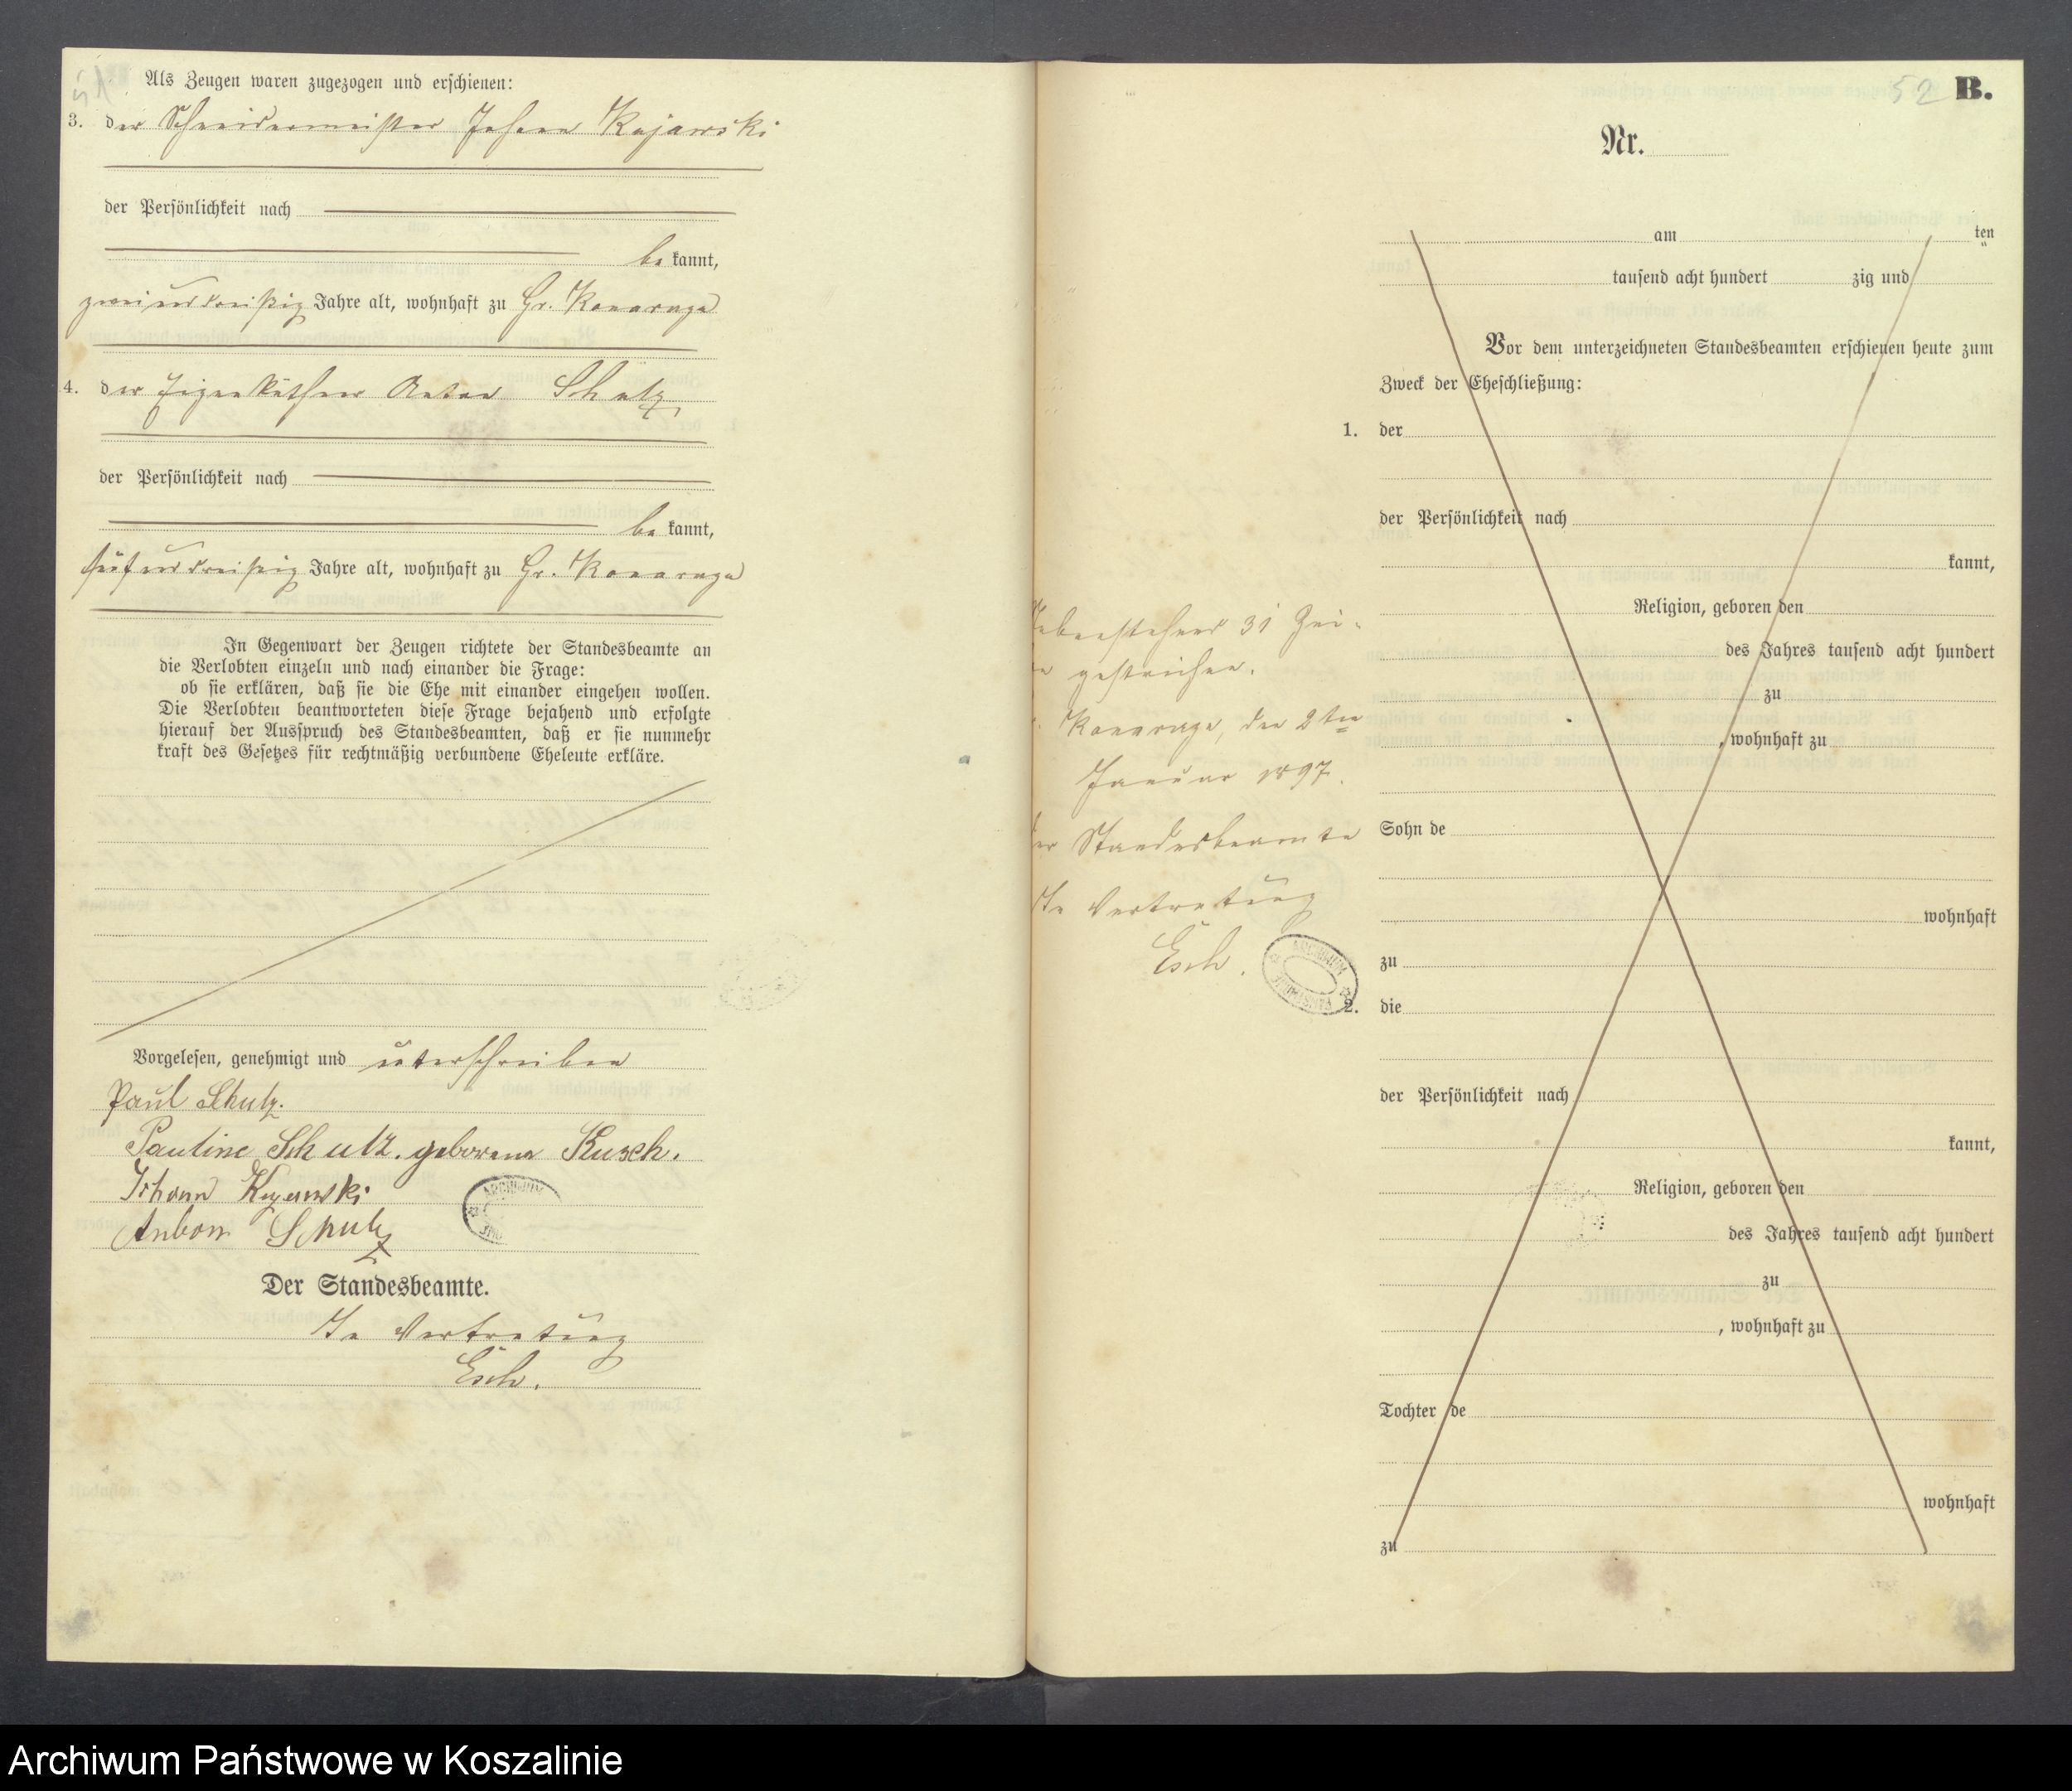 Als Zeugen waren zugezogen und erschienen:
3. der Schneidermeister Johann Kujawski
der Persönlichkeit nach
be kannt,
zweiunddreißig Jahre alt, wohnhaft zu Gr. Konarzyn
4. der Eigenkäthner Anton Schulz
der Persönlichkeit nach
be kannt,
fünfunddreißig Jahre alt, wohnhaft zu Gr. Konarzyn
In Gegenwart der Zeugen richtete der Standesbeamte an
die Verlobten einzeln und nach einander die Frage:
ob sie erklären, daß sie die Ehe mit einander eingehen wollen.
Die Verlobten beantworteten diese Frage bejahend und erfolgte
hierauf der Ausspruch des Standesbeamten, daß er sie nunmehr
kraft des Gesetzes für rechtmäßig verbundene Eheleute erkläre.
Vorgelesen, genehmigt und unterschrieben
Paul Schulz.
Pauline Schulz. geborene Rusch.
Johann Kujawski
Anton Schulz
ARCHIWUM
Der Standesbeamte.
In Vertretung
Esch.
52 B.
Nr.
am ten
tausend acht hundert zig und
Vor dem unterzeichneten Standesbeamten erschienen heute zum
Zweck der Eheschließung:
1. der
der Persönlichkeit nach
kannt,
Religion, geboren den
des Jahres tausend acht hundert
zu
, wohnhaft zu
Sohn de
wohnhaft
zu
2. die
der Persönlichkeit nach
kannt,
Religion, geboren den
des Jahres tausend acht hundert
zu
, wohnhaft zu
Tochter de
wohnhaft
zu
Nebenstehend 31 Zei-
gestrichen.
Konarzyn, den 2ten
Januar 1897.
Der Standesbeamte
In Vertretung
Esch.
ARCHIWUM
Archiwum Państwowe w Koszalinie